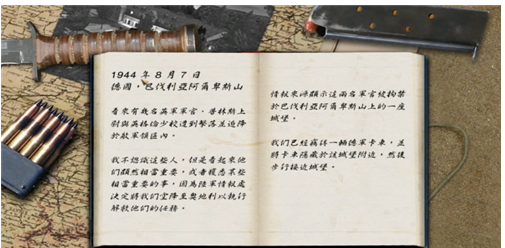 1944 年 8 月 7 日
德國，巴伐利亞阿爾卑斯山
看來有幾名英軍軍官，普林斯上
尉與英格倫少校遭到擊落並迫降
於敵軍領區內。
我不認識這些人，但是看起來他
們顯然相當重要，或者獲悉某些
相當重要的事，因為陸軍情報處
決定將我們空降至奧地利以執行
解救他們的任務。
情報來源顯示這兩名軍官被拘禁
於巴伐利亞阿爾卑斯山上的一座
城堡。
我們已經竊得一輛德軍卡車，並
將卡車隱藏於該城堡附近，然後
步行接近城堡。